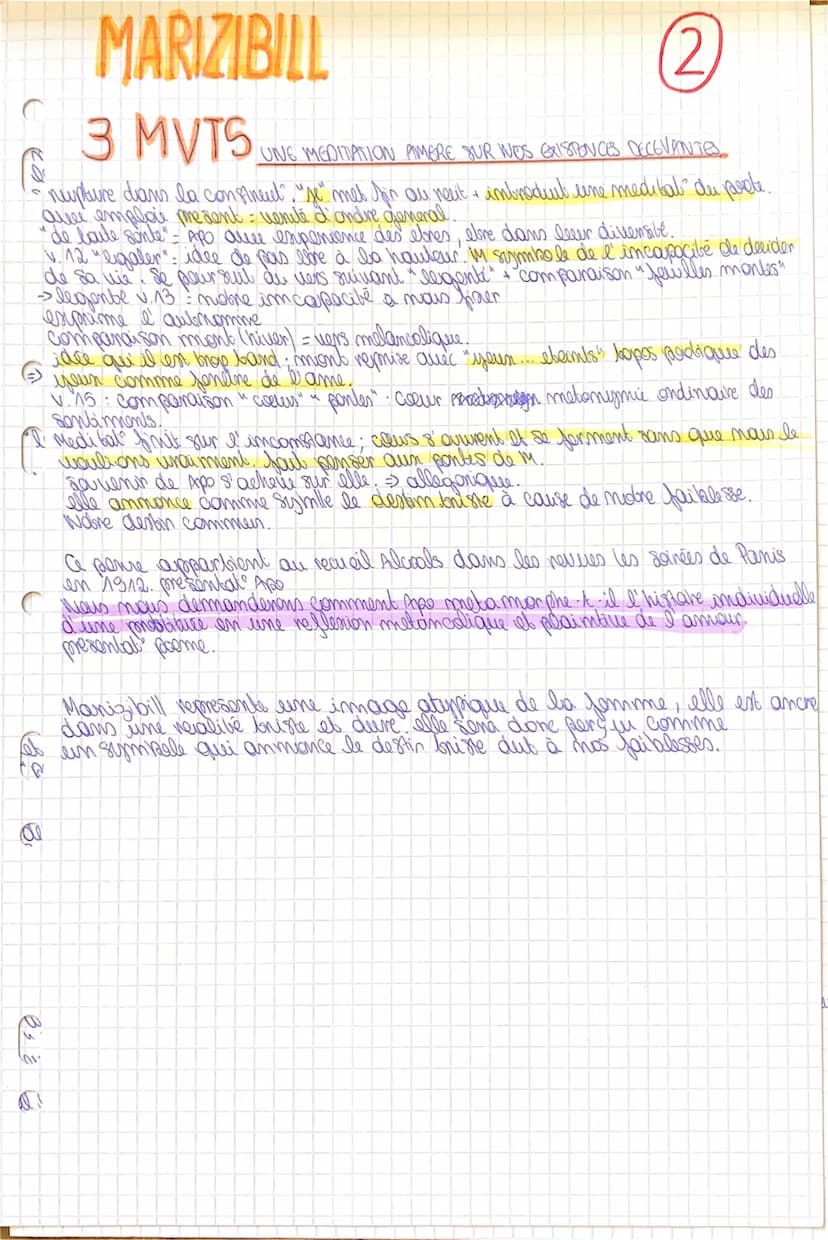 MARIZIBILL
2
3 MVTS UNE MEDITATION AMERE SUR NOS EXISTENCES DECEVANTES
rupture dans la continuit°. "je" met fin au récit + introduit une meditat° du poete.
avec emploie présent = vérité d'ordre general.
"de toute sorte" = Apo avec experience des etres, etre dans leur diversité.
v.12 "egaler" : idée de pas etre à la hauteur. M symbole de l'incapacité de decider
de sa vie. Se poursuit au vers suivant + comparaison "feuilles mortes"
→ v.13 : notre incapacité a nous fixer
exprime l'automne
comparaison mort (hiver) = vers melancolique.
idée qu'il est trop tard : mort reprise avec "yeux... eteints" topos poétique des
⇒ yeux comme fenetre de l'ame.
v.15 : comparaison "coeurs" "portes" : coeur metonymie ordinaire des
sentiments.
Meditat° finit sur l'inconstance ; coeurs s'ouvrent et se ferment sans que nous le
voulions vraiment. faut penser aux portes de M.
Souvenir de Apo s'acheve sur elle. ⇒ allegorique.
elle annonce comme le destin triste à cause de notre faiblesse.
Notre destin commun.
Ce poeme appartient au recueil Alcools dans les revues les soirées de Paris
en 1912. presentat° Apo
Nous nous demanderons comment Apo metamorphe-t-il l'histoire individuelle
d'une prostituée en une reflexion melancolique et plaintive de l'amour.
presentat° poeme.
Marizibill represente une image atypique de la femme, elle est ancre
dans une realité triste et dure. elle sera donc perçu comme
un symbole qui annonce le destin triste dut à nos faiblesses.